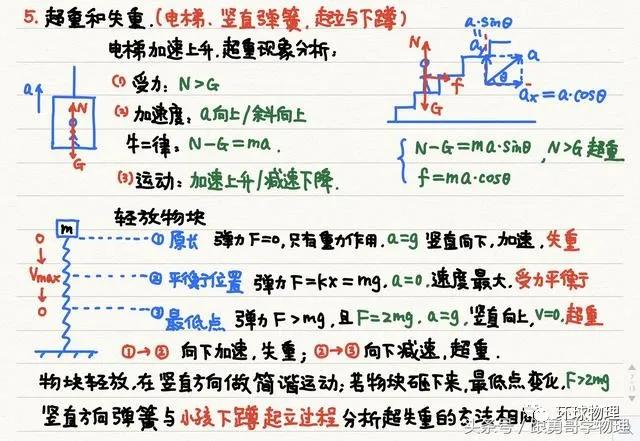 5. 超重和失重.(电梯、竖直弹簧、起立与下蹲)
电梯加速上升.超重现象分析:
(1) 受力: N>G
(2) 加速度: a向上/斜向上
牛=律: N-G=ma.
(3) 运动: 加速上升/减速下降.
a
N
G
a·sinθ
ay
a
θ
ax=a·cosθ
N
f
G
N-G=ma·sinθ, N>G 超重
f=ma·cosθ
轻放物块
m
0
Vmax
0
① 原长 弹力F=0,只有重力作用.a=g 竖直向下,加速,失重
② 平衡位置 弹力F=kx=mg.a=0.速度最大.受力平衡
③ 最低点 弹力F>mg,且F=2mg.a=g,竖直向上,V=0.超重
①→② 向下加速,失重; ②→③ 向下减速,超重.
物块轻放.在竖直方向做简谐运动;若物块砸下来.最低点变化,F>2mg
竖直方向弹簧与小孩下蹲起立过程分析超失重的方法相同
环球物理